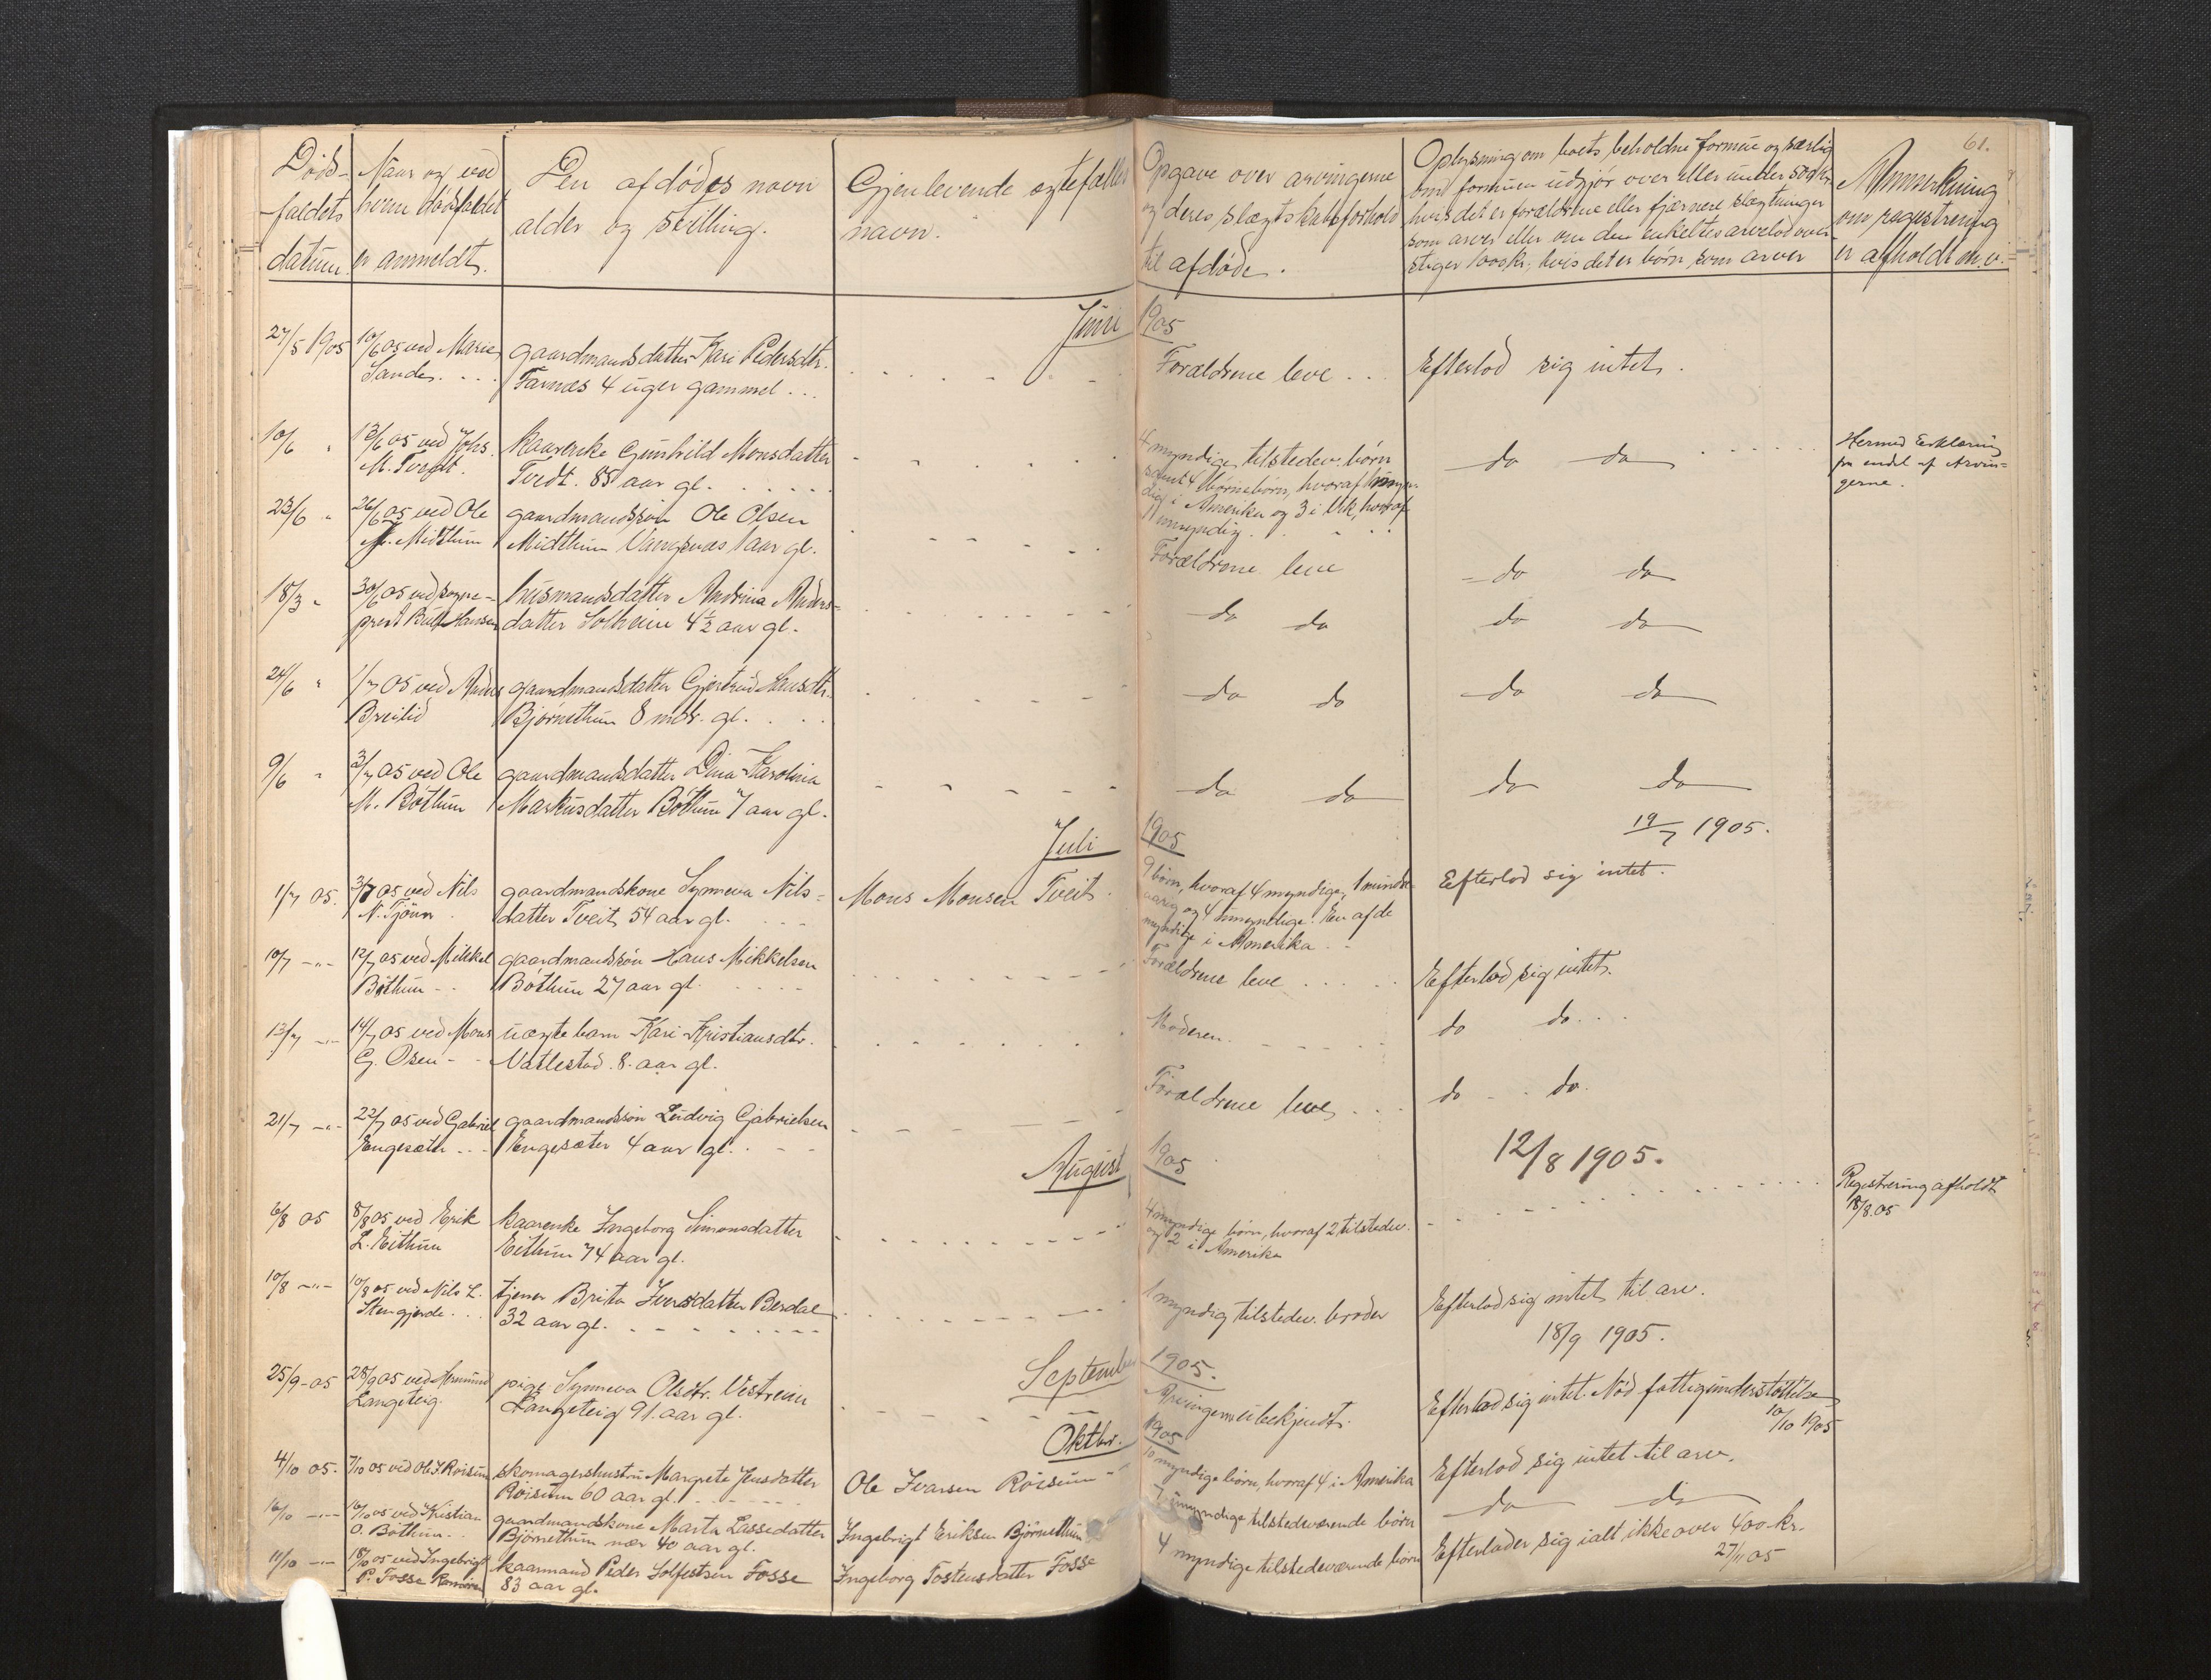 61.
Døds-
faldets
datum.
Naar og ved
hvem dødsfaldet
er anmeldt.
Den afdødes navn
alder og stilling.
Gjenlevende egtefælles
navn.
Opgave over arvingerne
og deres slægtskabsforhold
til afdøde.
Oplysning om boets beholdne formue og særlig
om formuen udgjør over eller under 500 kr.
hvis det er forældrene eller fjærnere slægtninger
som arver eller om den enkeltes arvelod over-
stiger 1000 kr., hvis det er børn som arver
Anmerkning
om registrering
er afholdt m.v.
Juni 1905
27/5 1905
10/6 05 ved Marie
Sande. . . .
gaardmandsdatter Kari Pedersdtr.
Farnæs 4 uger gammel . . .
Forældrene leve . .
Efterlod sig intet.
10/6 "
13/6 05 ved Johs.
M. Tvedt.
kaarenke Gunhild Monsdatter
Tvedt. 85 aar gl. . . . . .
4 myndige tilstedev. børn
samt 4 børnebørn, hvoraf 1 myn-
dig i Amerika og 3 i Vik, hvoraf
1 umyndig. . . . .
do do
Hermed Erklæring
fra endel af Arvin-
gerne.
23/6 "
26/6 05 ved Ole
M. Midthun
gaardmandssøn Ole Olsen
Midthun Vangsnæs 1 aar gl.
Forældrene leve
do do
18/3 "
30/6 05 ved sogne-
prest Bull Hansen
husmandsdatter Andrina Anders-
datter Solheim 4½ aar gl.
do do
do do
24/6 "
1/7 05 ved Anders
Breilid
gaardmandsdatter Gjertrud Hansdtr.
Bjørnethun 8 mdr. gl. . . .
do do
do do
9/6 "
3/7 05 ved Ole
M. Bøthun
gaardmandsdatter Dina Karolina
Markusdatter Bøthun 7 aar gl.
do do
do do
19/7 1905.
Juli 1905
1/7 05.
3/7 05 ved Nils
N. Tjönn
gaardmandskone Synneva Nils-
datter Tveit 54 aar gl. . . .
Mons Monsen Tveit.
9 børn, hvoraf 4 myndige, 1 mindre-
aarig og 4 umyndige. En af de
myndige i Amerika . .
Efterlod sig intet.
10/7 -"-
12/7 05 ved Mikkel
Bøthun - .
gaardmandssøn Hans Mikkelsen
Bøthun 27 aar gl. . . . .
Forældrene leve . . . . .
Efterlod sig intet.
13/7 -"-
14/7 05 ved Mons
G. Osen - .
uægte barn Kari Kristiansdtr.
Natlestad. 8. aar gl.
Moderen.
do do. . .
21/7 -"-
22/7 05 ved Gabriel
Engesæter . . .
gaardmandssøn Ludvig Gabrielsen
Engesæter 4 aar gl. . . .
Forældrene leve . . .
do - . do.
12/8 1905.
August 1905
6/8 05
8/8 05 ved Erik
L. Eithun
kaarenke Ingeborg Simonsdatter
Eithun 74 aar gl.
4 myndige børn, hvoraf 2 tilstedev.
og 2 i Amerika
Registrering afholdt
18/8.05
10/8 -"-
10/8 05 ved Nils L.
Stengjerde. . .
tjener Brita Iversdatter Berdal
32 aar gl. . . . . .
1 myndig tilstedev. broder
Efterlod sig intet til arv.
18/9 1905.
September 1905.
25/9-05
28/9 05 ved Amund
Langeteig.
pige Synneva Olsdtr. Vestreim
Langeteig 91. aar gl.
Arvingerne ubekjendt.
Efterlod sig intet. Nød fattigunderstøttelse
10/10 1905
Oktbr. 1905
4/10 05.
7/10 05 ved Ole I. Roisum
skomagerhustru Margrete Jensdatter
Røisum 60 aar gl. . . . .
Ole Ivarsen Røisum
10 myndige børn, hvoraf 4 i Amerika
Efterlod sig intet til arv.
16/10 -"-
16/10 05 ved Kristian
O. Bøthun. .
gaardmandskone Marta Lassedatter
Bjørnethun nær 40 aar gl.
Ingebrigt Eriksen Bjørnethun
7 umyndige tilstedeværende børn
do do
11/10 -"-
18/10 05 ved Ingebrigt
P. Fosse
kaarmand Peder Solfestsen Fosse
83 aar gl.
Ingeborg Tostensdatter Fosse
4 myndige tilstedeværende børn
Efterlader sig ialt ikke over 400 kr.
27/11 05